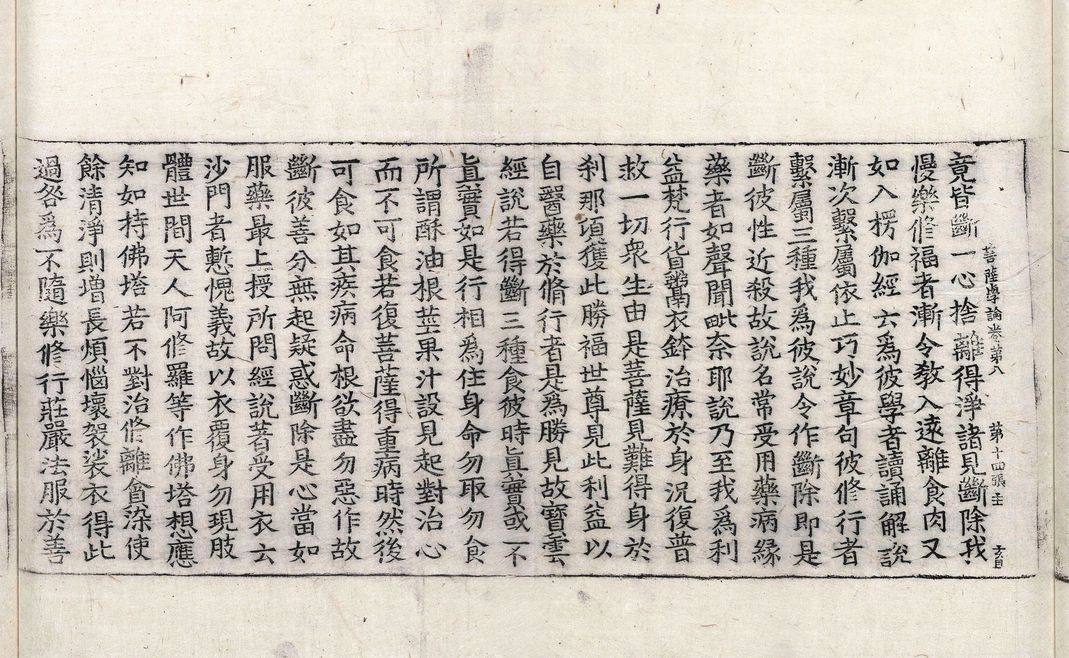 菩薩學論卷苐八 第十四張 圭
竟皆斷一心捨離得淨諸見斷除我
慢樂修福者漸令教入遠離食肉又
如入楞伽經云爲彼學者讀誦解說
漸次繫屬依止巧妙章句彼修行者
繫屬三種我爲彼說令作斷除即是
斷彼性近殺故說名常受用藥病緣
藥者如聲聞毗奈耶說乃至我爲利
益梵行貨鬻衣鉢治療於身況復普
救一切衆生由是菩薩見難得身於
刹那頃獲此勝福世尊見此利益以
自醫藥於脩行者是爲勝見故寶雲
經說若得斷三種食彼時眞實或不
眞實如是行相爲住身命勿取勿食
所謂酥油根莖果汁設見起對治心
而不可食若復菩薩得重病時然後
可食如其疾病命根欲盡勿惡作故
斷彼善分無起疑惑斷除是心當如
服藥最上授所問經說著受用衣云
沙門者慙愧義故以衣覆身勿現肢
體世間天人阿修羅等作佛塔想應
知如持佛塔若不對治脩離貪染使
餘清淨則增長煩惱壞袈裟衣得此
過咎爲不隨樂修行莊嚴法服於善